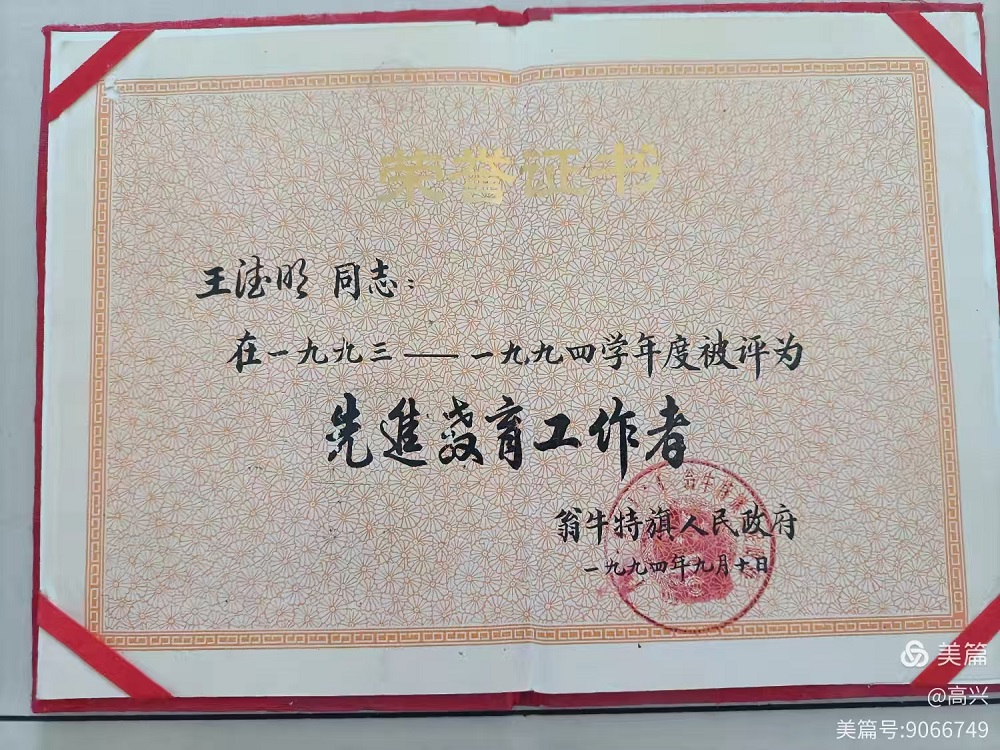 荣誉证书
王德明 同志：
在一九九三——一九九四学年度被评为
先進教育工作者
翁牛特旗人民政府
一九九四年九月十日
美篇
@高兴
美篇号:9066749